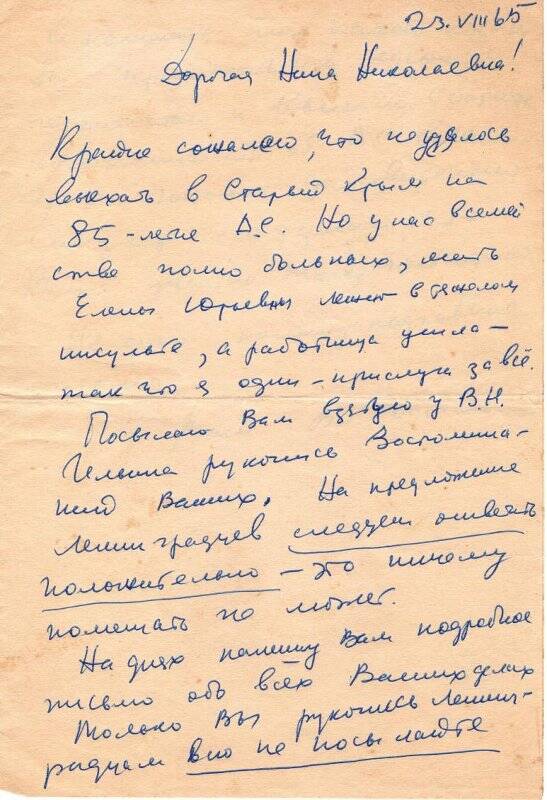 23.VIII 65
Дорогая Нина Николаевна!
Крайне сожалею, что не удалось
выехать в Старый Крым на
85-летие А.С. Но у нас в семей
стве полно больных, мать
Елены Юрьевны лежит в тяжелом
инсульте, а работница ушла –
так что я один – прислуга за всё.
Посылаю Вам взятую у В.Н.
Ильина рукопись Воспомина-
ний Ваших. На предложение
Ленинградцев следует отвечать
положительно – это ничему
помешать не может.
На днях напишу Вам подробное
письмо обо всех Ваших делах
Только Вы рукопись Ленинг-
радцам не посылайте